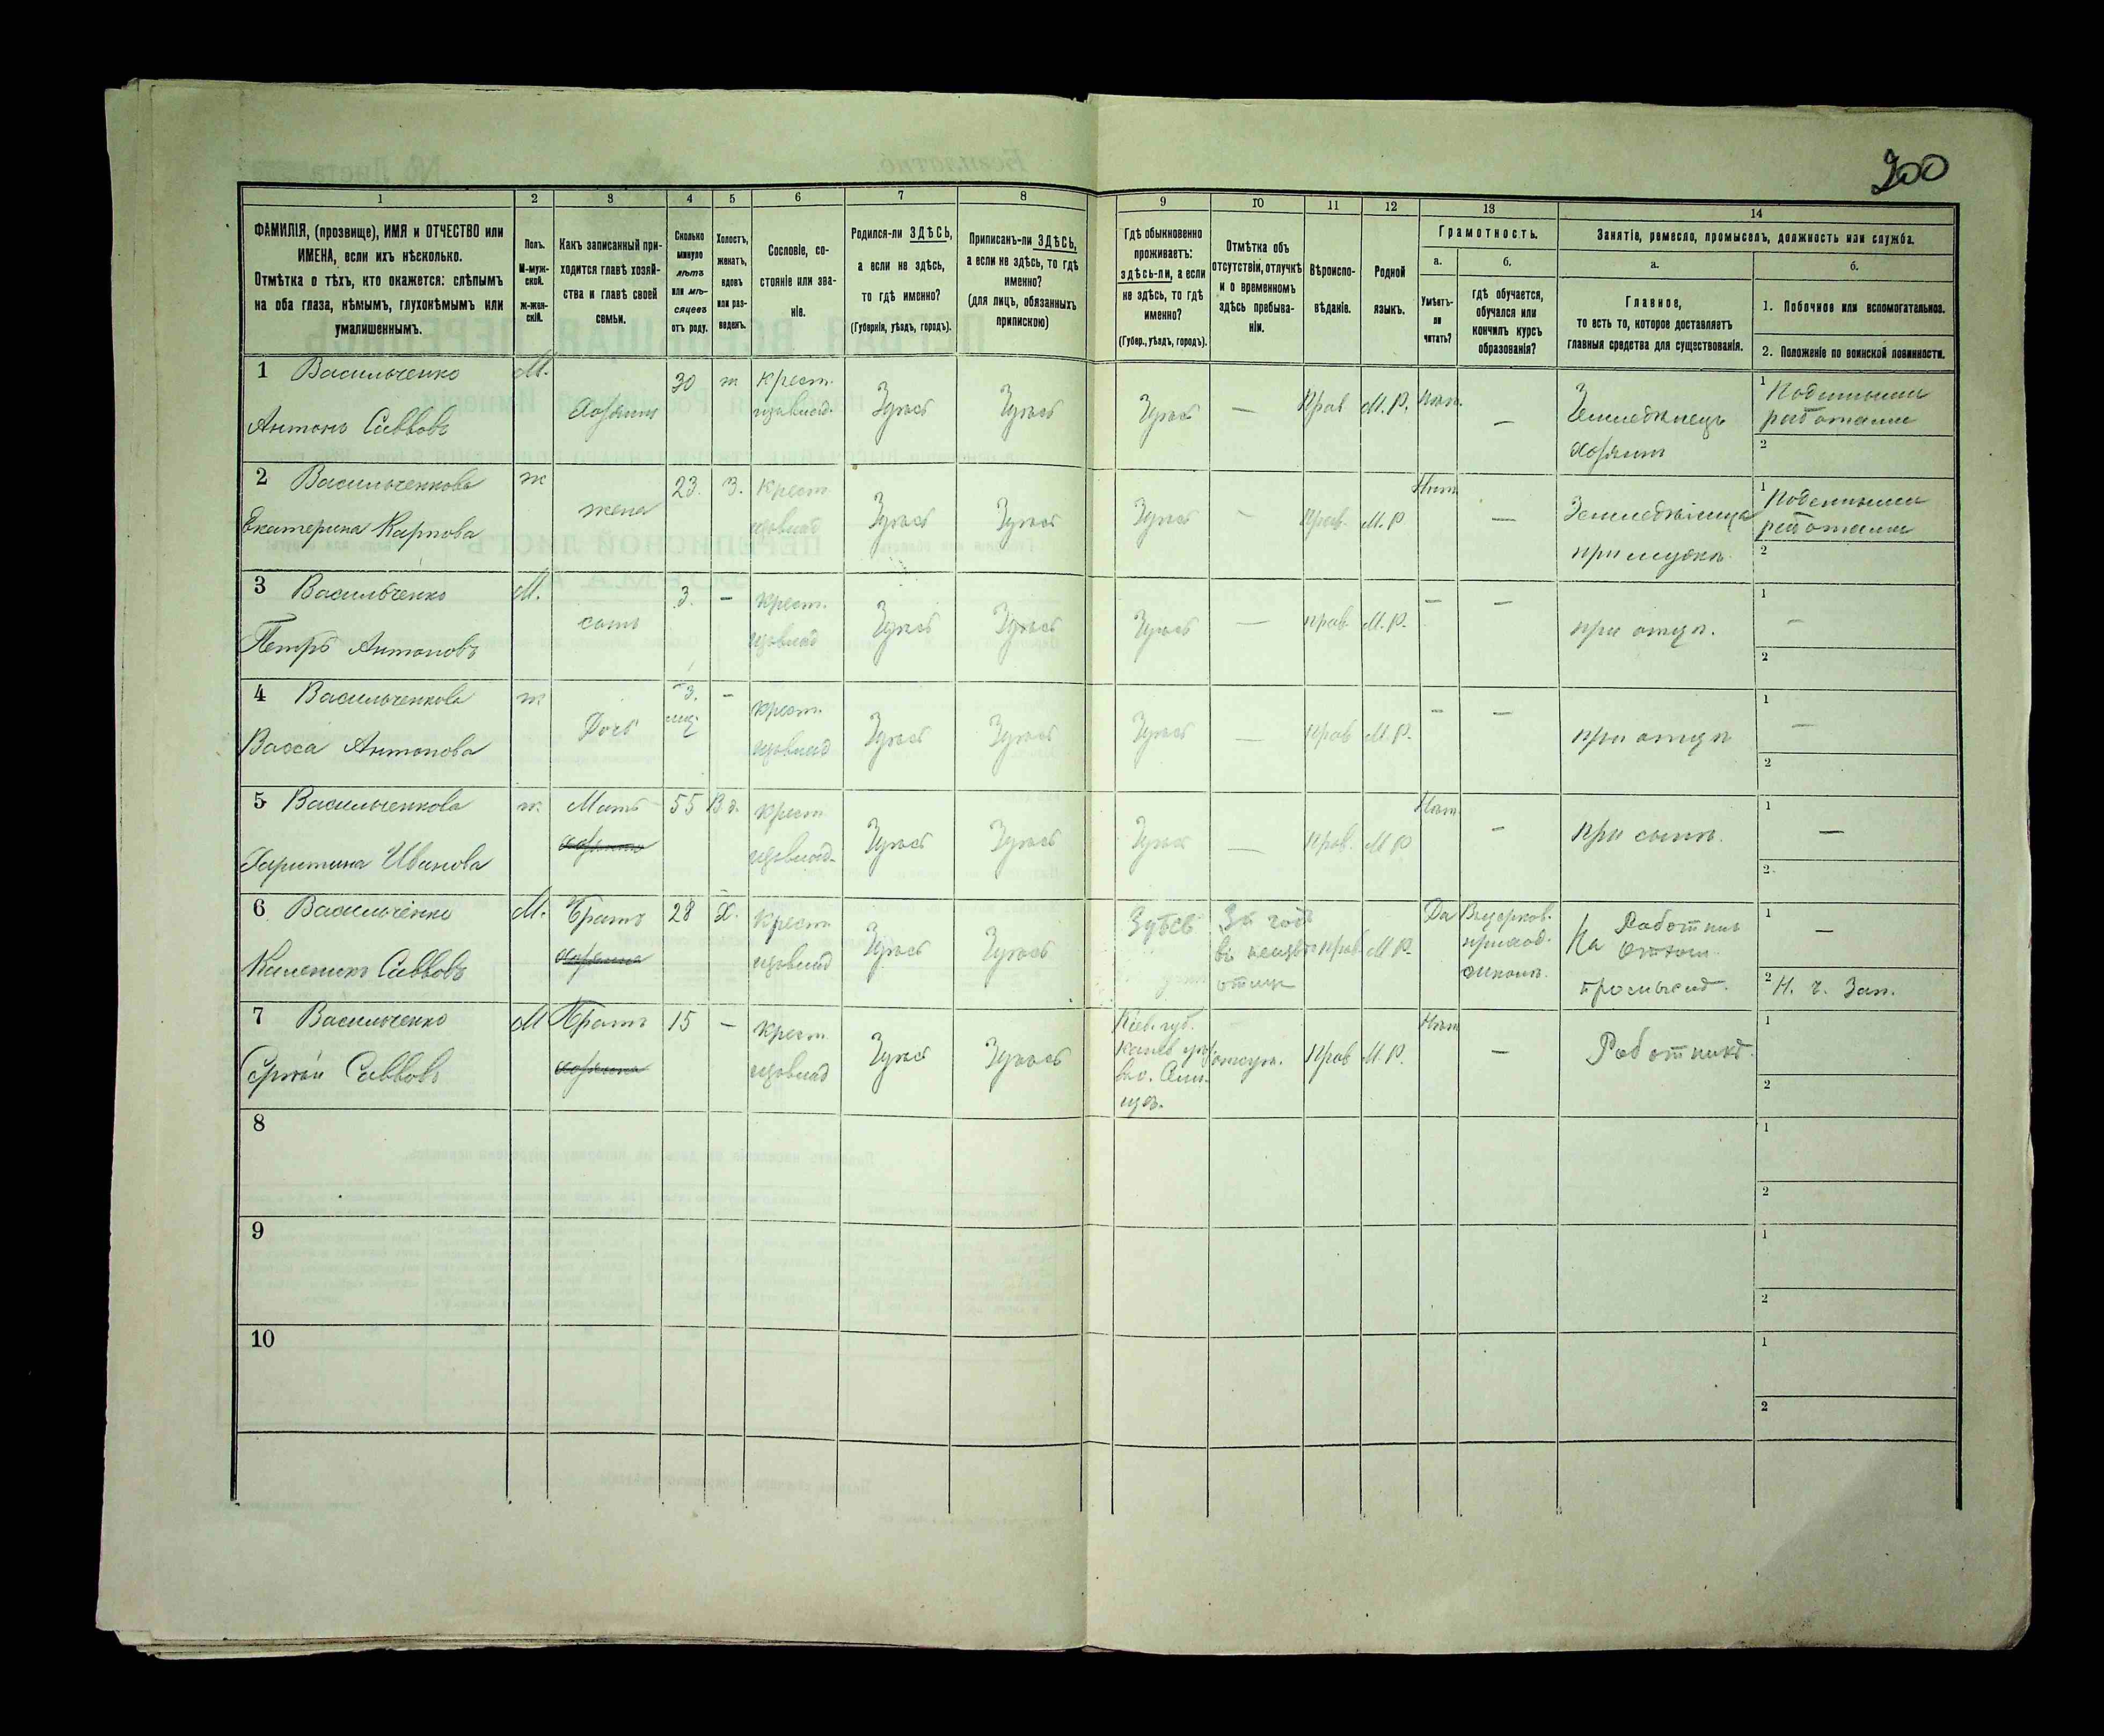 200
1
2
3
4
5
6
7
8
9
10
11
12
13
14
ФАМИЛІЯ, (прозвище), ИМЯ и ОТЧЕСТВО или
ИМЕНА, если ихъ нѣсколько.
Отмѣтка о тѣхъ, кто окажется: слѣпымъ
на оба глаза, нѣмымъ, глухонѣмымъ или
умалишеннымъ.
Полъ.
М-муж-
ской.
ж-жен-
скій.
Какъ записанный при-
ходится главѣ хозяй-
ства и главѣ своей
семьи.
Сколько
минуло
лѣтъ
или мѣ-
сяцевъ
отъ роду.
Холостъ,
женатъ,
вдовъ
или раз-
веденъ.
Сословіе, со-
стояніе или зва-
ніе.
Родился-ли ЗДѢСЬ,
а если не здѣсь,
то гдѣ именно?
(Губернія, уѣздъ, городъ).
Приписанъ-ли ЗДѢСЬ,
а если не здѣсь, то гдѣ
именно?
(для лицъ, обязанныхъ
припискою)
Гдѣ обыкновенно
проживаетъ:
здѣсь-ли, а если
не здѣсь, то гдѣ
именно?
(Губер., уѣздъ, городъ).
Отмѣтка объ
отсутствіи, отлучкѣ
и о временномъ
здѣсь пребыва-
ніи.
Вѣроиспо-
вѣданіе.
Родной
языкъ.
Грамотность.
а.
Умѣетъ-
ли
читать?
б.
гдѣ обучается,
обучался или
кончилъ курсъ
образованія?
Занятіе, ремесло, промыселъ, должность или служба.
а.
Главное,
то есть то, которое доставляетъ
главныя средства для существованія.
б.
1. Побочное или вспомогательное.
2. Положеніе по воинской повинности.
1 Васильченко
Антонъ Саввовъ
М.
Хозяинъ
30
ж
Крест.
Здѣсь
Здѣсь
Здѣсь
—
Прав
М.Р.
Нѣт.
—
Земледѣлецъ
хозяинъ
1 Поденными
работами
2
2 Васильченкова
Екатерина Карпова
ж
жена
23.
З.
Крест
Здѣсь
Здѣсь
Здѣсь
-
Прав.
М.Р
Нѣт
—
Земледѣлица
при мужѣ
1 Поденными
работами
2
3 Васильченко
Петръ Антоновъ
М.
сынъ
3.
-
Крест.
Здѣсь
Здѣсь
Здѣсь
—
Прав
М.Р.
—
—
при отцѣ.
1
—
2
4 Васильченкова
Васса Антонова
ж
Дочь
3.
-
Крест.
Здѣсь
Здѣсь
Здѣсь
—
Прав
М.Р.
-
—
при отцѣ
1
—
2
5 Васильченкова
Харитина Иванова
ж.
Мать
55
Вд.
Крест
Здѣсь
Здѣсь
Здѣсь
—
Прав.
М.Р
Нѣт.
-
при сынѣ.
1
—
2
6 Васильченко
Каленикъ Саввовъ
М.
Братъ
28
Х.
Крест
Здѣсь
Здѣсь
Здѣсь
прав
М.Р.
Да
Въ церков.
приход.
школѣ.
Работник
На
промысл.
1
—
2 Н. ч. Зап.
7 Васильченко
Сергѣй Саввовъ
М
Братъ
15
-
Крест
Здѣсь
Здѣсь
Кіев. губ.
отсут.
Прав
М.Р.
Нѣт
—
Работникъ.
1
2
8
1
2
9
1
2
10
1
2